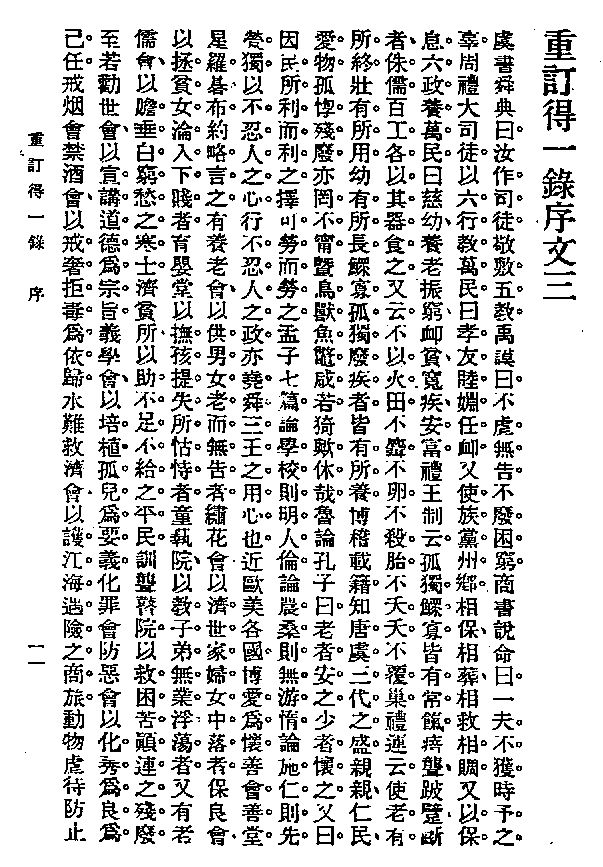 重訂得一錄序文三
虞書舜典曰汝作司徒敬敷五教禹謨曰不虐無告不廢困窮商書說命曰一夫不獲時予之
辜周禮大司徒以六行教萬民曰孝友睦婣任卹又使族黨州鄉相保相葬相救相賙又以保
息六政養萬民曰慈幼養老振窮卹貧寬疾安富禮王制云孤獨鰥寡皆有常餼瘖聾跛躄斷
者侏儒百工各以其器食之又云不以火田不麛不卵不殺胎不夭夭不覆巢禮運云使老有
所終壯有所用幼有所長鰥寡孤獨廢疾者皆有所養博稽載籍知唐虞三代之盛親親仁民
愛物孤惸殘廢亦罔不甯曁鳥獸魚鼈咸若猗歟休哉魯論孔子曰老者安之少者懷之又曰
因民所利而利之擇可勞而勞之孟子七篇論學校則明人倫論農桑則無游惰論施仁則先
煢獨以不忍人之心行不忍人之政亦堯舜三王之用心也近歐美各國博愛爲懷善會善堂
星羅碁布約略言之有養老會以供男女老而無告者繡花會以濟世家婦女中落者保良會
以拯貧女淪入下賤者育嬰堂以撫孩提失所怙恃者童執院以教子弟無業浮蕩者又有老
儒會以贍垂白窮愁之寒士濟貧所以助不足不給之平民訓聾瞽院以救困苦顚連之殘廢
至若勸世會以宣講道德爲宗旨義學會以培植孤兒爲要義化罪會防惡會以化莠爲良爲
己任戒烟會禁酒會以戒奢拒毒爲依歸水難救濟會以護江海遇險之商旅動物虐待防止
重訂得一錄 序 一一